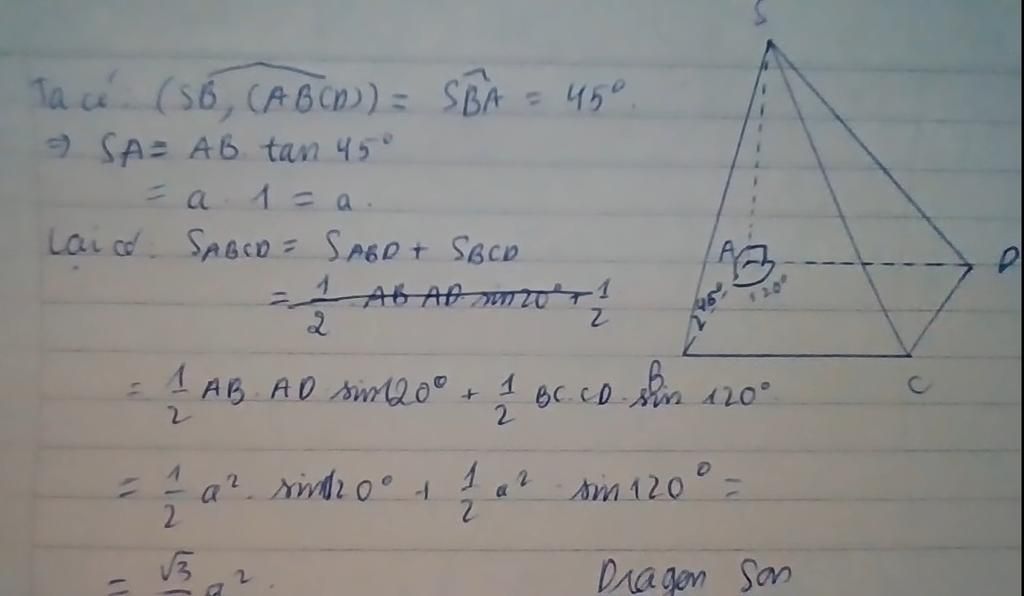 Ta có: (SB, (ABCD)) = SBA = 45°.
⇒ SA = AB tan 45°
= a . 1 = a.
Lại có: SABCD = SABD + SBCD
= 1/2 AB AD sin 20° + 1/2
= 1/2 AB . AD sin120° + 1/2 BC.CD.sin 120°
= 1/2 a². sin120° + 1/2 a² sin120° =
= √3/ a².
Dragon Son
S
A
D
45°
120°
B
C